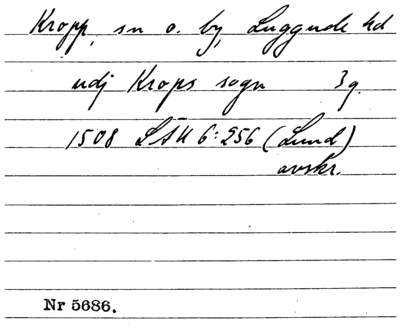 Kropp, sn o. by, Luggude hd
udj Krops sogn 3g.
1508 LÄU 6:256 (Lund)
avskr.
Nr 5686.